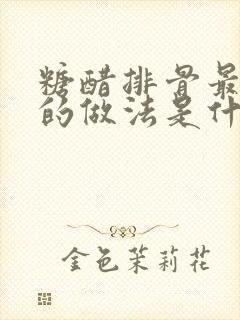 糖醋排骨最
的做法是什
金色茉莉花